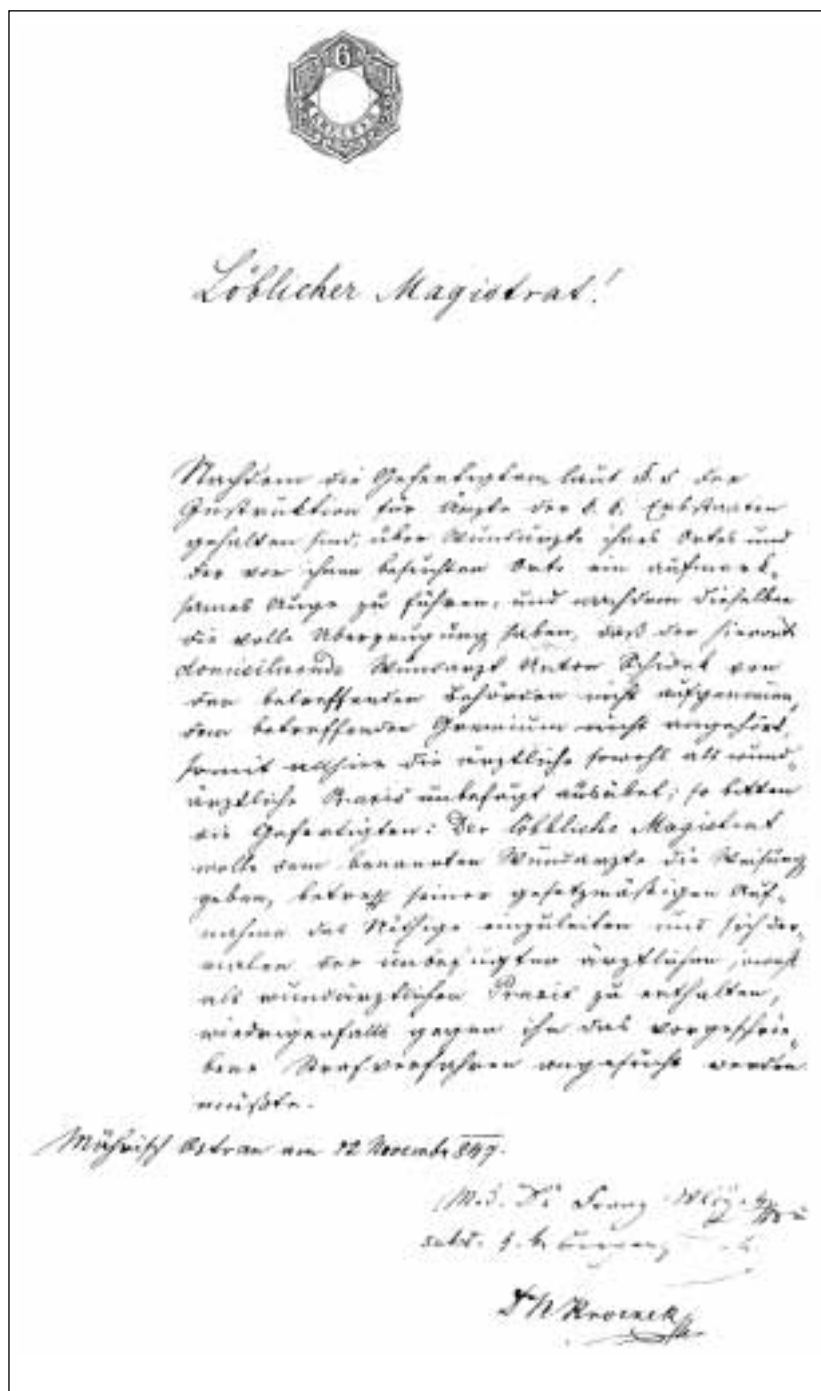 6
KREUZER
Löblicher Magistrat!
Nachdem die Gefertigten laut der
Instruktion für Ärzte der k. k. Erbstaaten
gehalten sind, über Wundärzte ihres Ortes und
der von ihnen besuchten Orte ein aufmerk-
sames Auge zu führen, und nachdem dieselben
die volle Überzeugung haben, daß der hierorts
domicilirende Wundarzt Anton von
den betreffenden Behörden nicht aufgenommen,
dem betreffenden Gremium nicht angehört,
somit allhier die ärztliche sowohl als wund-
ärztliche Praxis unbefugt ausübet; so bitten
die Gefertigten: Der löbliche Magistrat
wolle dem benannten Wundarzte die Weisung
geben, betreff seiner gesetzmäßigen Auf-
nahme das Nöthige einzuleiten und sich der-
malen der unbefugten ärztlichen sowohl
als wundärztlichen Praxis zu enthalten,
wiedrigenfalls gegen ihn das vorgeschrie-
bene Strafverfahren angesucht werden
müßte.
Mährisch Ostrau am 12 November 847.
Med. Dr Franz
Dr